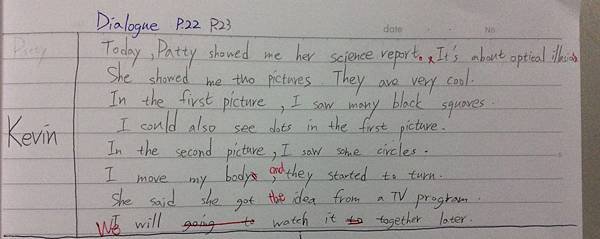 Dialogue P.22 P.23
date No.
Patty
Today, Patty showed me her science report. It's about optical illusion
She showed me two pictures. They are very cool.
In the first picture, I saw many black squares.
Kevin
I could also see dots in the first picture.
In the second picture, I saw some circles.
I move my body, and they started to turn.
She said she got the idea from a TV program.
We I will going to watch it to together later.